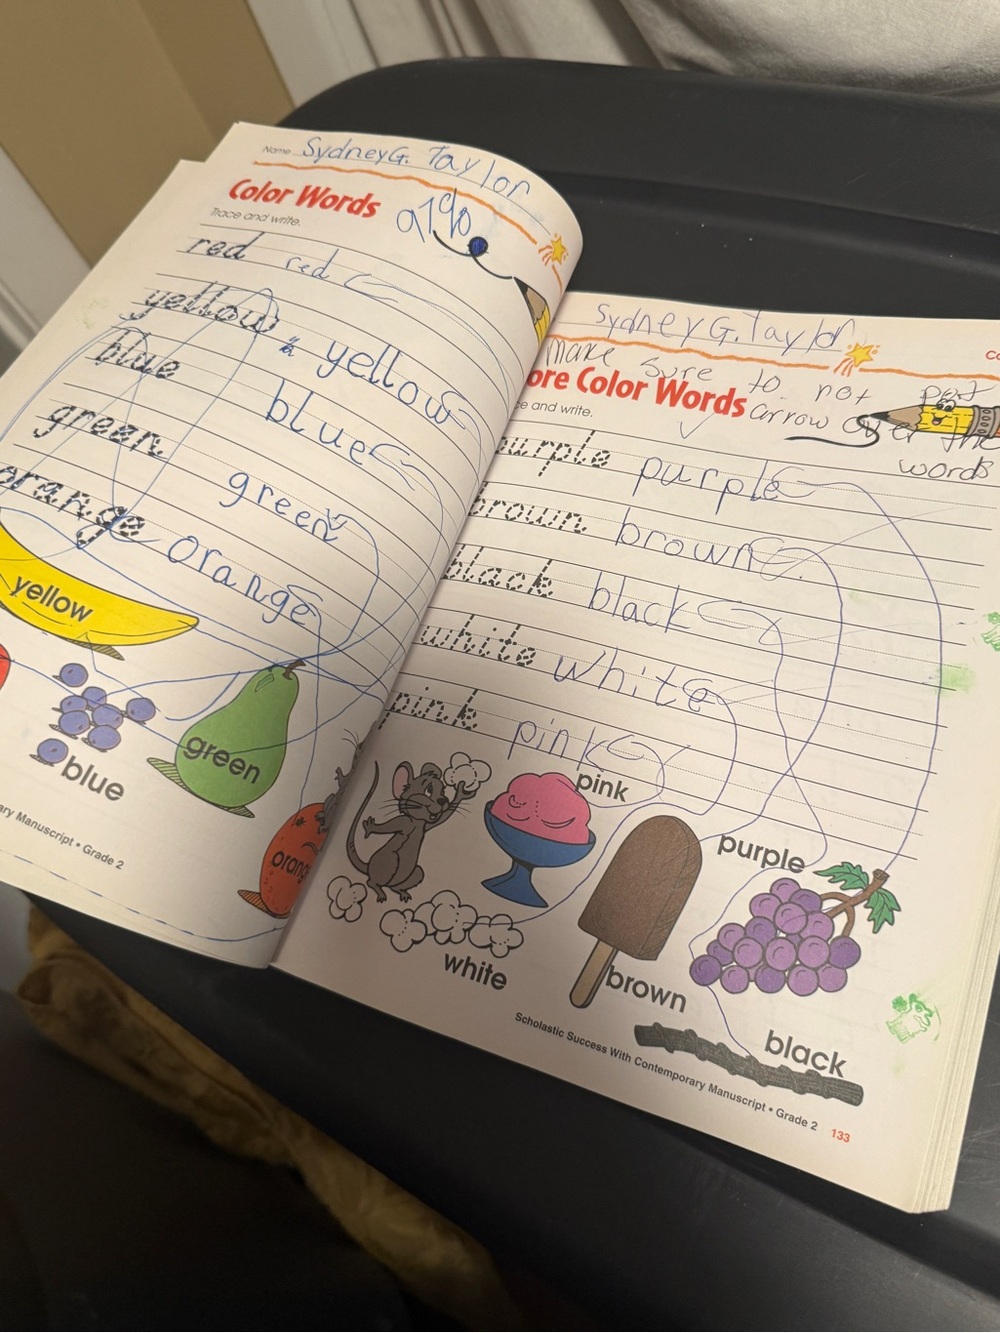 Name Sydney G. Taylor
Color Words
Trace and write.
red red
yellow yellow
blue blue
green green
orange orange
yellow
blue
green
orang
ary Manuscript • Grade 2
Sydney G. Taylor
Make sure to not put
ore Color Words arrow over the
ce and write. words
purple purple
brown brown
black black
white white
pink pink
pink
purple
white
brown
black
Scholastic Success With Contemporary Manuscript • Grade 2 133